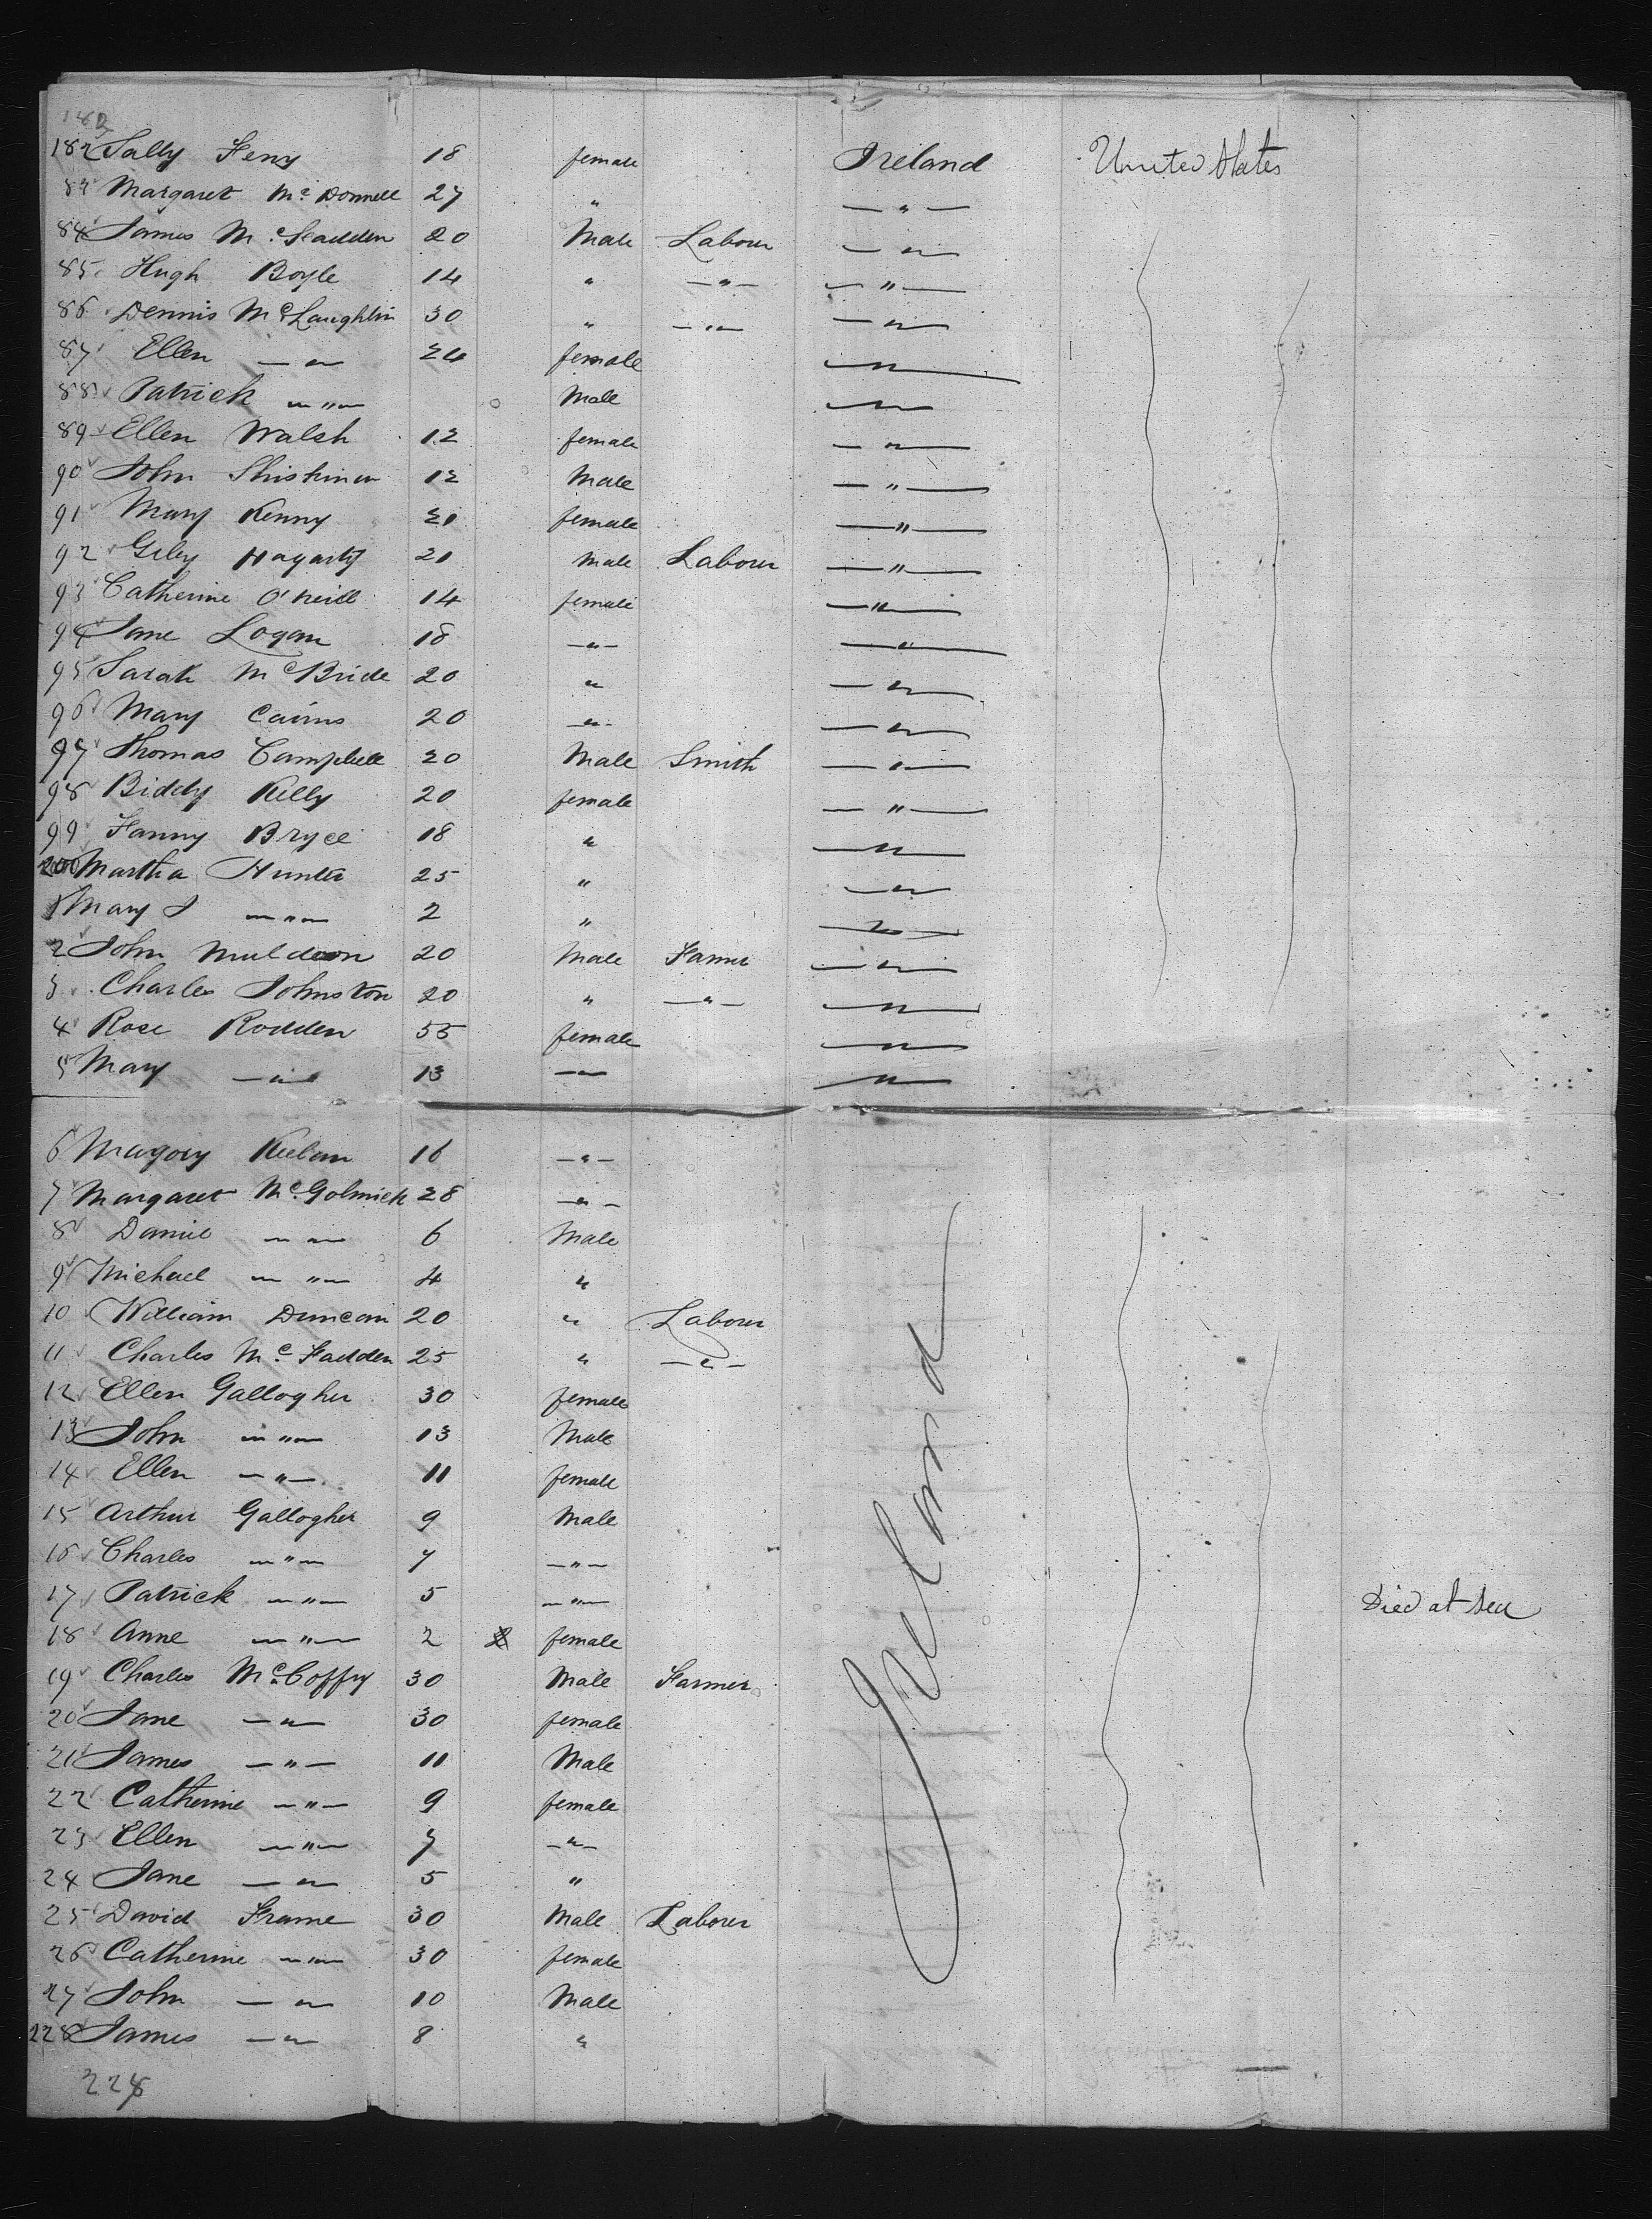 182
182 Sally Feny 18 female Ireland United States
83 Margaret Mc Donnell 27 " — " —
84 James Mc Feadden 20 Male Labour — " —
85 Hugh Boyle 14 " — " — — " —
86 Dennis McLaughlin 30 " — " — — " —
87 Ellen — " — 24 female — " —
88 Patrick — " — Male — " —
89 Ellen Walsh 12 female — " —
90 John 12 Male — " —
91 Mary Kenny 21 female — " —
92 Giley Hagarty 21 Male Labour — " —
93 Catherine O'Neill 14 female — " —
94 Jane Logan 18 — " — — " —
95 Sarah McBride 20 " — " —
96 Mary Cairns 20 — " — — " —
97 Thomas Campbell 20 Male Smith — " —
98 Biddy Kelly 20 female — " —
99 Fanny Bryce 18 " — " —
200 Martha Hunter 25 " — " —
1 Mary J — " — 2 " — " —
2 John Muldoon 20 Male Farmer — " —
3 Charles Johnston 20 " — " — — " —
4 Rose Rodden 55 female — " —
5 Mary — " — 13 — " — — " —
6 Magory 16 — " —
7 Margaret Mc Golmick 28 — " —
8 Daniel — " — 6 Male
9 Michael — " — 4 "
10 William Duncan 20 " Labour
11 Charles Mc Fadden 25 " — " —
12 Ellen Gallogher 30 female
13 John — " — 13 Male
14 Ellen — " — 11 female
15 Arthur Gallogher 9 Male
16 Charles — " — 7 — " —
17 Patrick — " — 5 — " — Died at Sea
18 Anne — " — 2 female
19 Charles McCoffry 30 Male Farmer
20 Jane — " — 30 female
21 James — " — 11 Male
22 Catherine — " — 9 female
23 Ellen — " — 7 — " —
24 Jane — " — 5 "
25 David Frame 30 Male Laborer
26 Catherine — " — 30 female
27 John — " — 10 Male
228 James — " — 8 "
Ireland
228